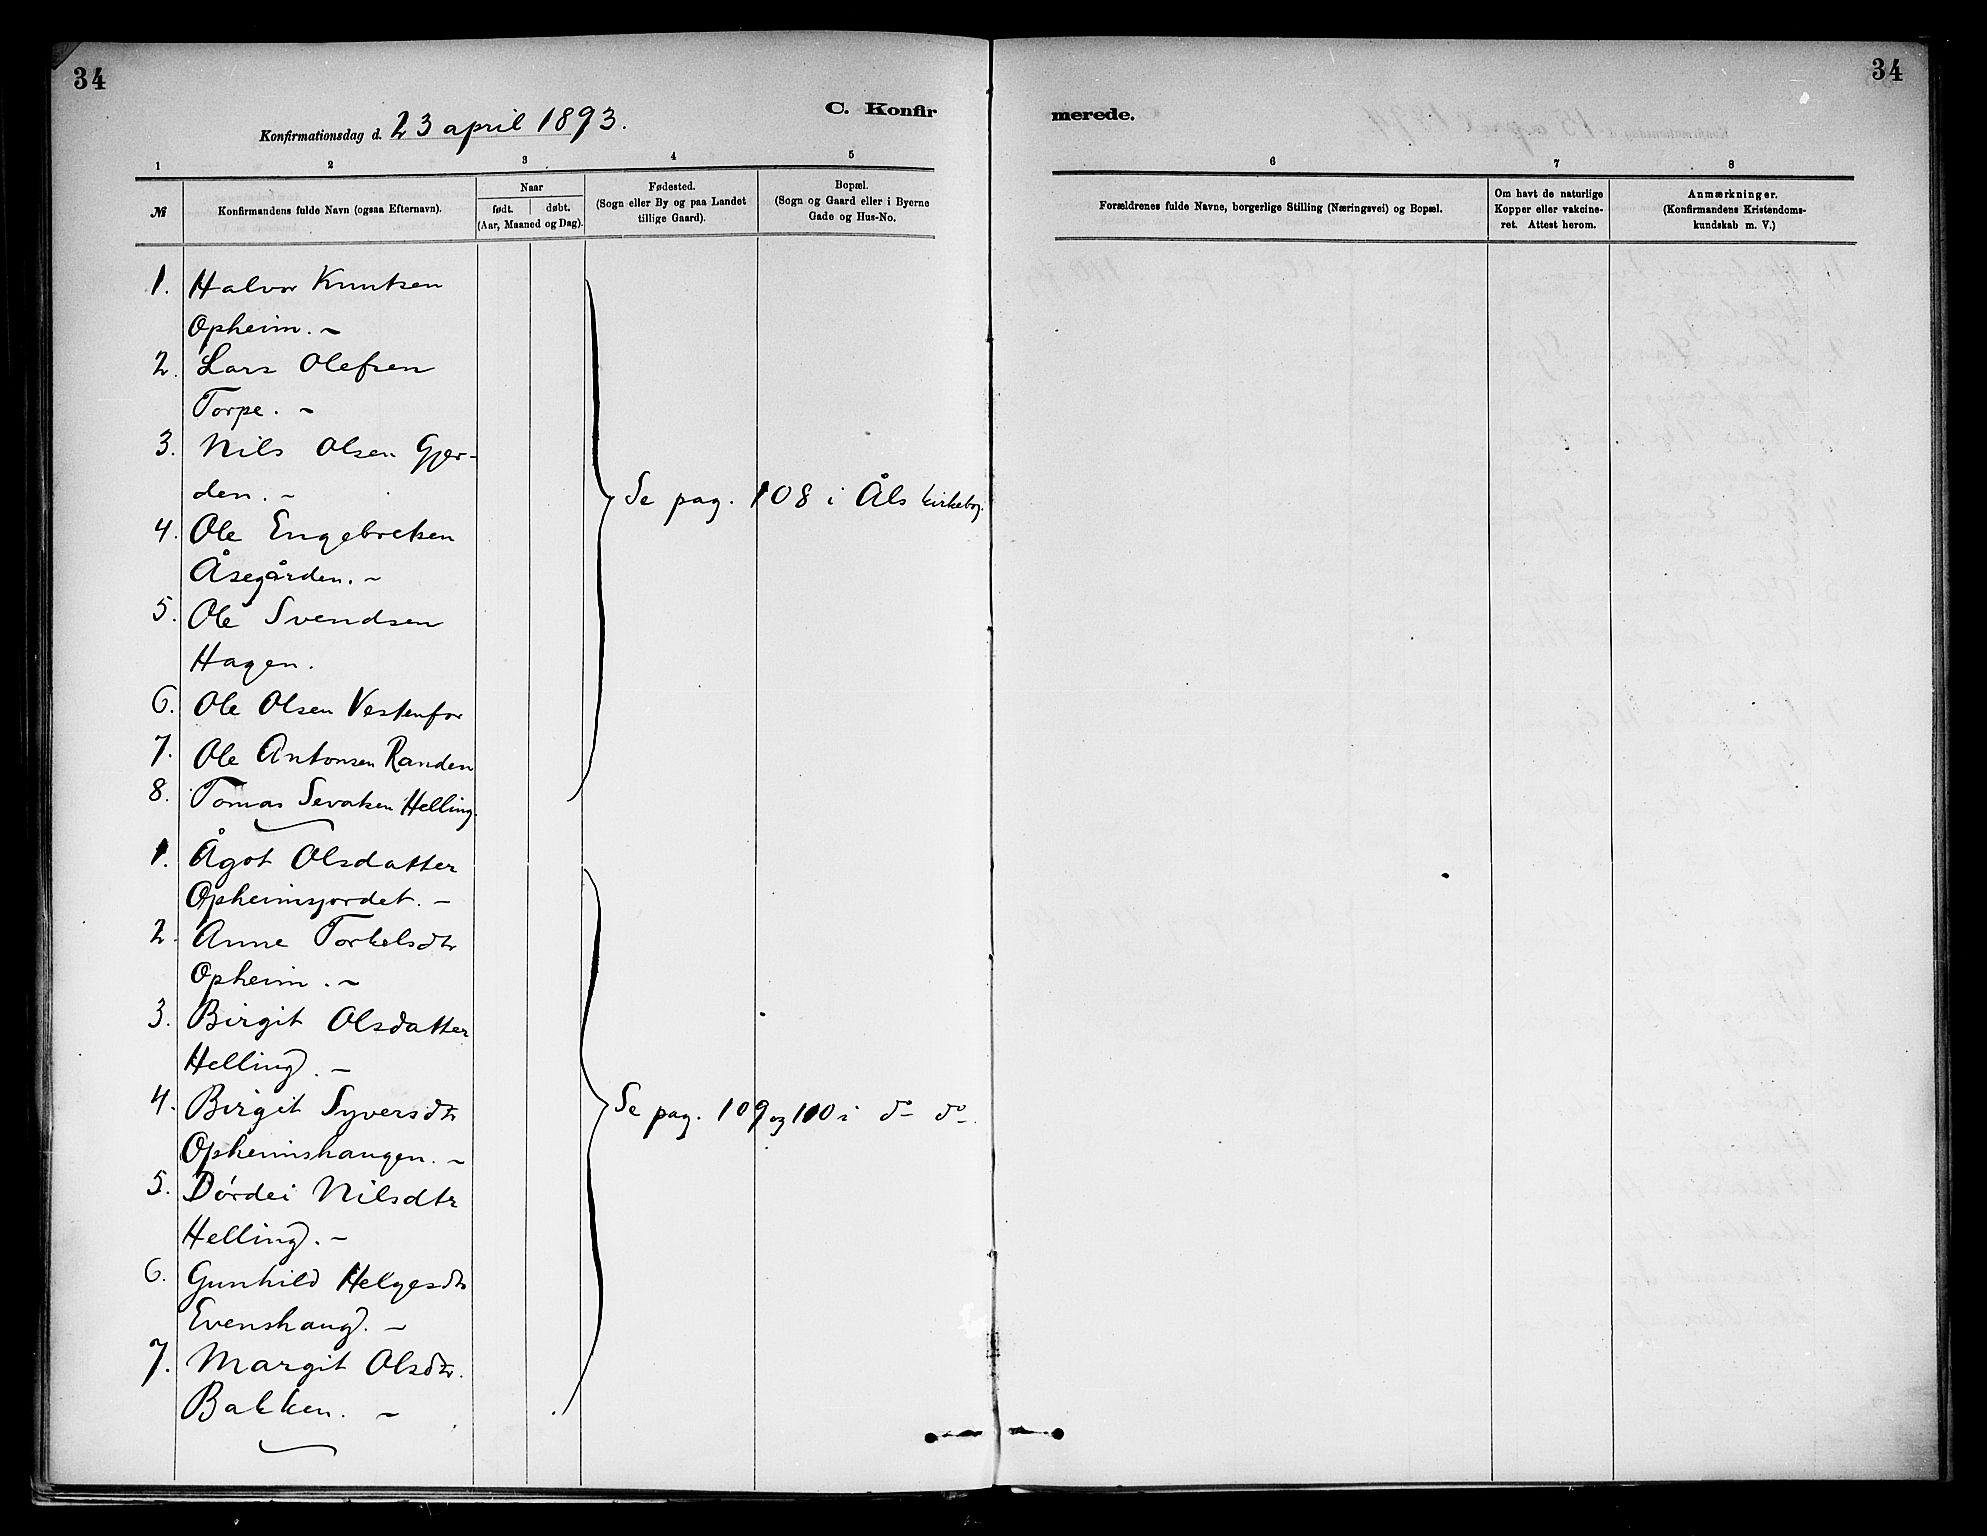 34
34
C. Konfir
merede.
Konfirmationsdag d. 23 april 1893.
1
2
3
4
5
6
7
8
№
Konfirmandens fulde Navn (ogsaa Efternavn).
Naar
født.
døbt.
(Aar, Maaned og Dag).
Fødested.
(Sogn eller By og paa Landet
tillige Gaard).
Bopæl.
(Sogn og Gaard eller i Byerne
Gade og Hus-No.
Forældrenes fulde Navne, borgerlige Stilling (Næringsvei) og Bopæl.
Om havt de naturlige
Kopper eller vakcine-
ret. Attest herom.
Anmærkninger.
(Konfirmandens Kristendoms-
kundskab m. V.)
1. Halvor Knutsen
Opheim. ~
2. Lars Olefsen
Torpe. ~
3. Nils Olsen Gjer-
den. ~
Se pag. 108 i Åls kirkebog.
4. Ole Engebretsen
Åsegården. ~
5. Ole Svendsen
Hagen.
6. Ole Olsen Vestenfor
7. Ole Antonsen Randen
8. Tomas Sevatsen Helling.
1. Ågot Olsdatter
Opheimsjordet. ~
2. Anne Torkelsdtr
Opheim. ~
3. Birgit Olsdatter
Helling. ~
4. Birgit Syversdtr
Opheimshaugen. ~
Se pag. 109 og 110 i do do.
5. Dórdei Nilsdtr
Helling. ~
6. Gunhild Helgesdtr
Evenshaug. ~
7. Margit Olsdtr.
Bakken. ~